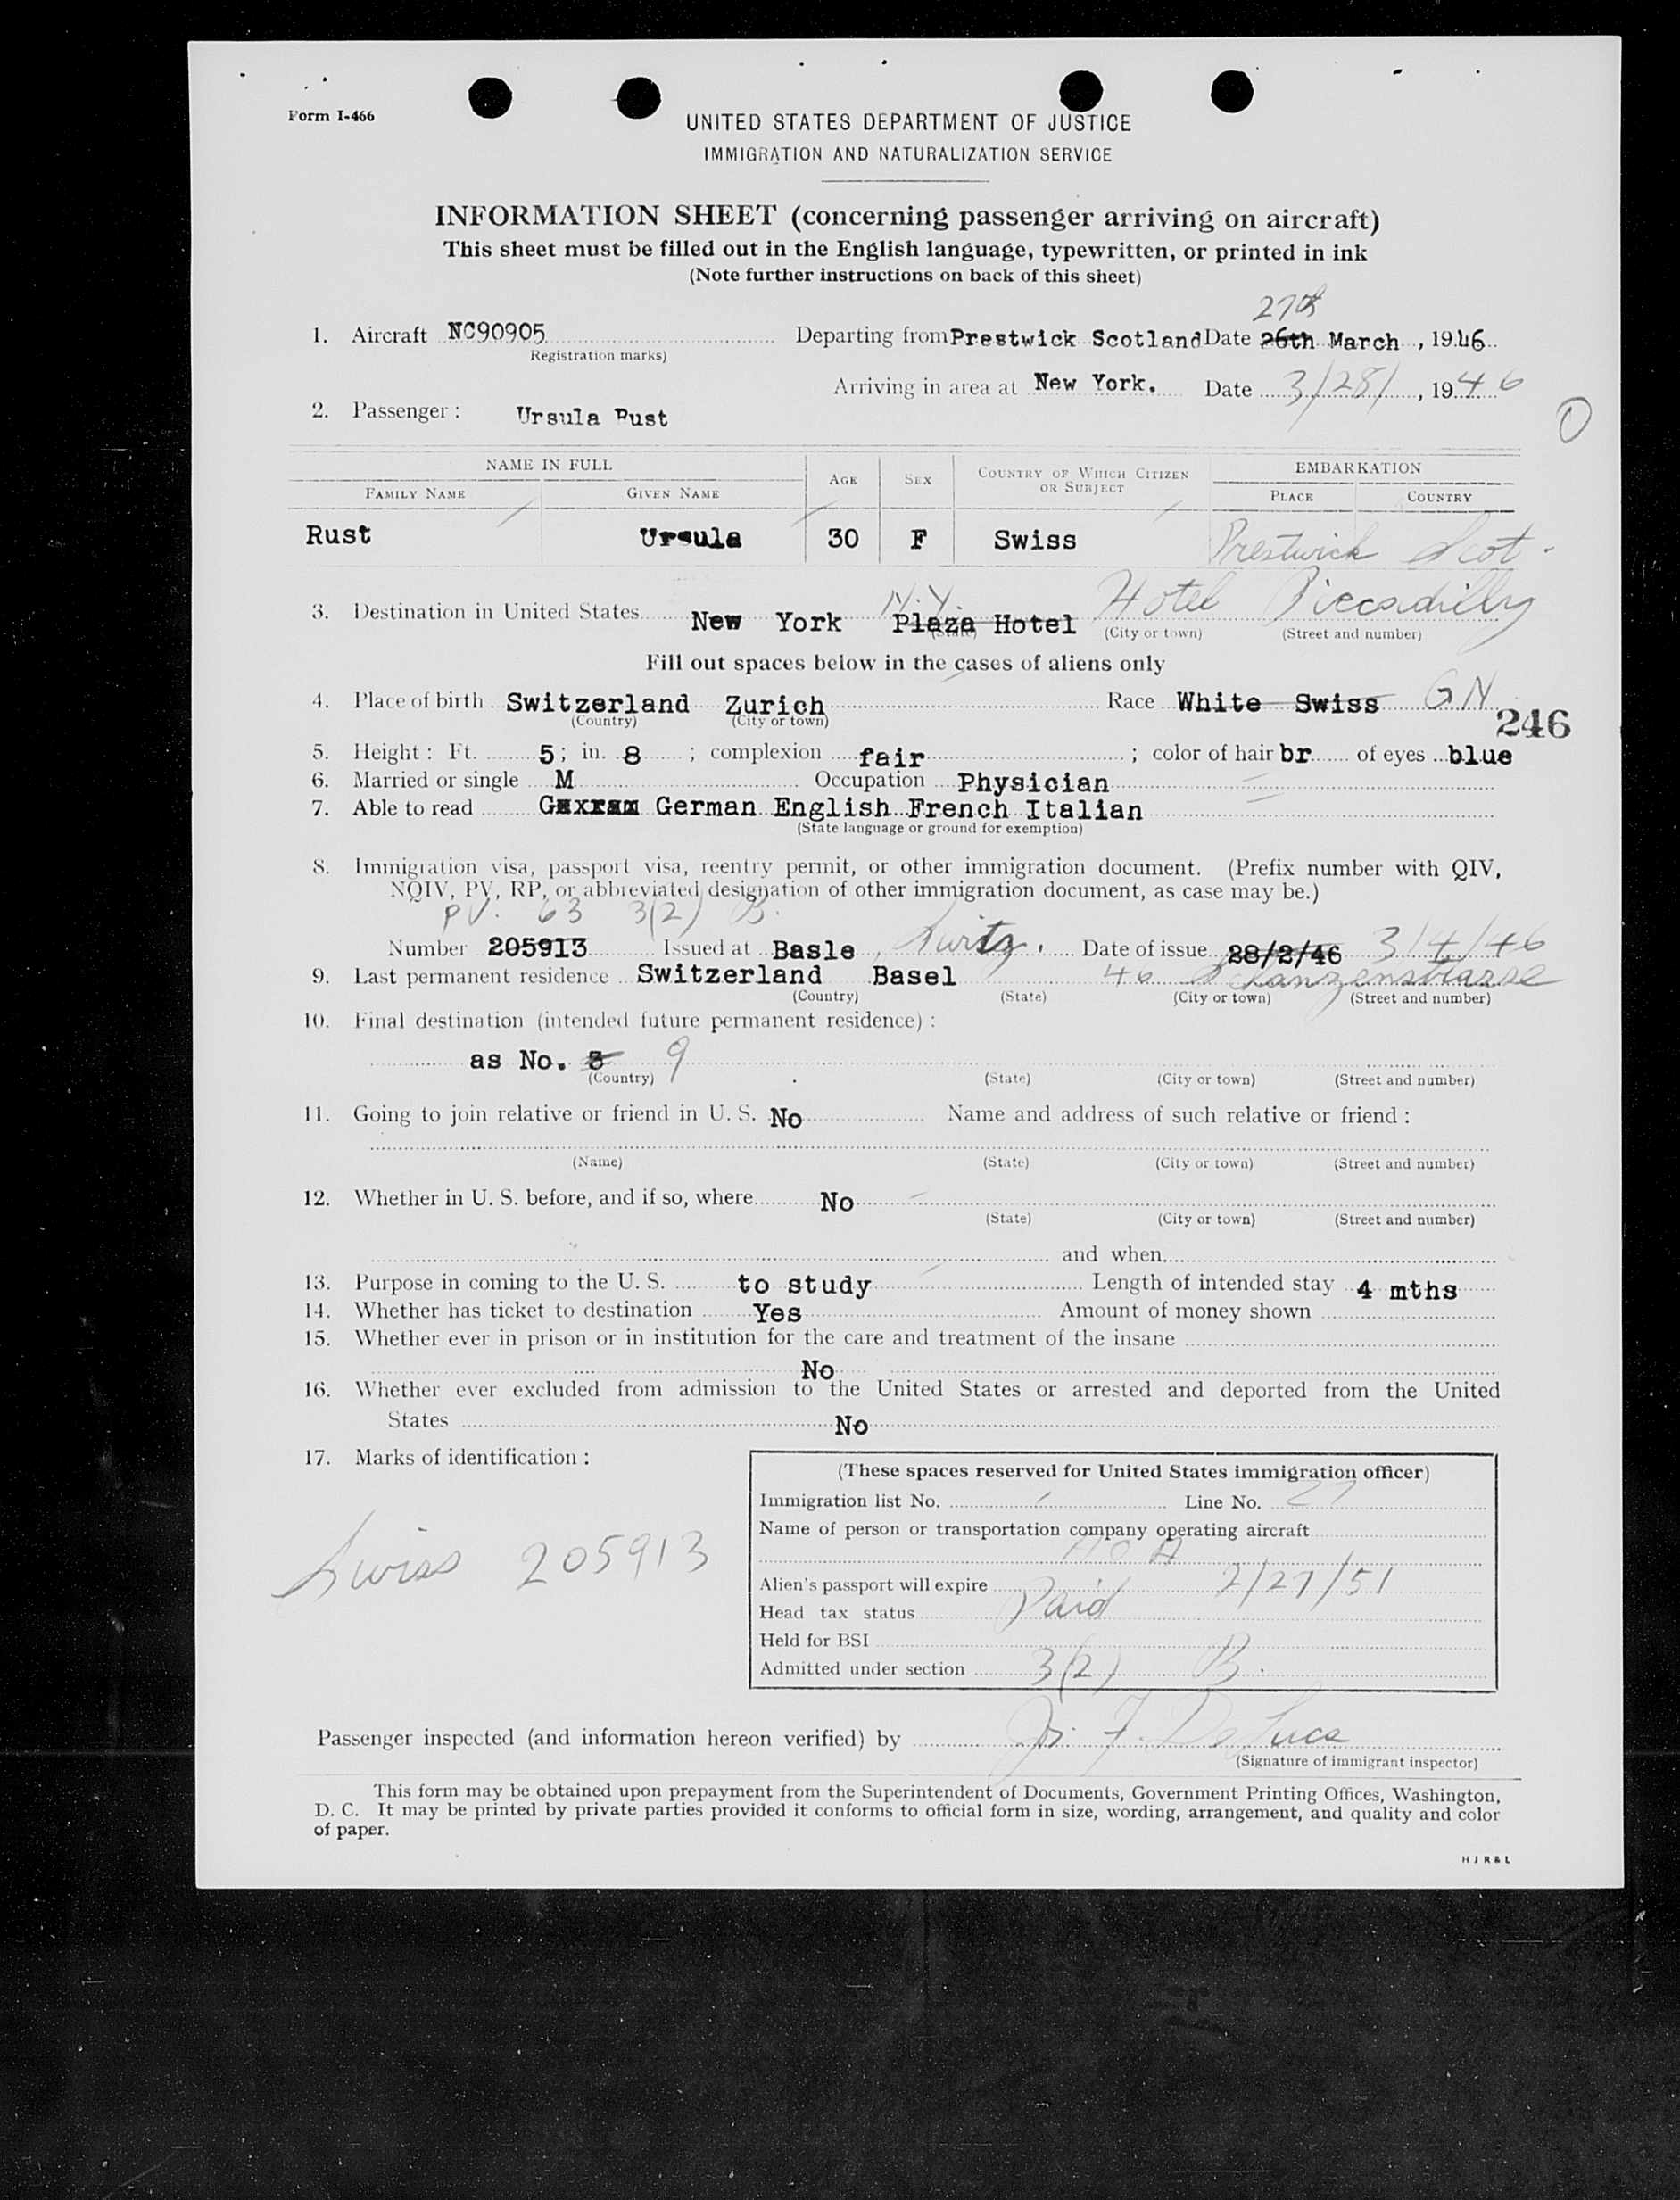 Form I-466
UNITED STATES DEPARTMENT OF JUSTICE
IMMIGRATION AND NATURALIZATION SERVICE
INFORMATION SHEET (concerning passenger arriving on aircraft)
This sheet must be filled out in the English language, typewritten, or printed in ink
(Note further instructions on back of this sheet)
27th
1. Aircraft NC90905 Departing from Prestwick Scotland Date 26th March, 1946
Registration marks)
Arriving in area at New York. Date 3/28/, 1946
2. Passenger: Ursula Rust
O
NAME IN FULL AGE SEX COUNTRY OF WHICH CITIZEN OR SUBJECT EMBARKATION
FAMILY NAME GIVEN NAME PLACE COUNTRY
Rust Ursula 30 F Swiss Prestwick Scot.
N.Y. Hotel Piccadilly
3. Destination in United States New York Plaza Hotel
(State) (City or town) (Street and number)
Fill out spaces below in the cases of aliens only
4. Place of birth Switzerland Zurich Race White Swiss GN
(Country) (City or town)
246
5. Height: Ft. 5; in. 8; complexion fair; color of hair br of eyes blue
6. Married or single M Occupation Physician
7. Able to read German English French Italian
(State language or ground for exemption)
8. Immigration visa, passport visa, reentry permit, or other immigration document. (Prefix number with QIV,
NQIV, PV, RP, or abbreviated designation of other immigration document, as case may be.)
PV. 63 3(2) B.
Number 205913 Issued at Basle, Switz. Date of issue 28/2/46 3/4/46
9. Last permanent residence Switzerland Basel 46 Schanzenstrasse
(Country) (State) (City or town) (Street and number)
10. Final destination (intended future permanent residence):
as No. 8 9
(Country) (State) (City or town) (Street and number)
11. Going to join relative or friend in U. S. No Name and address of such relative or friend:
(Name) (State) (City or town) (Street and number)
12. Whether in U. S. before, and if so, where No
(State) (City or town) (Street and number)
and when
13. Purpose in coming to the U. S. to study Length of intended stay 4 mths
14. Whether has ticket to destination Yes Amount of money shown
15. Whether ever in prison or in institution for the care and treatment of the insane
No
16. Whether ever excluded from admission to the United States or arrested and deported from the United
States No
17. Marks of identification:
Swiss 205913
(These spaces reserved for United States immigration officer)
Immigration list No. Line No. 27
Name of person or transportation company operating aircraft
AOA
Alien's passport will expire 2/27/51
Head tax status Paid
Held for BSI
Admitted under section 3(2) B.
Passenger inspected (and information hereon verified) by F. De Luca
(Signature of immigrant inspector)
This form may be obtained upon prepayment from the Superintendent of Documents, Government Printing Offices, Washington,
D. C. It may be printed by private parties provided it conforms to official form in size, wording, arrangement, and quality and color
of paper.
H J R & L